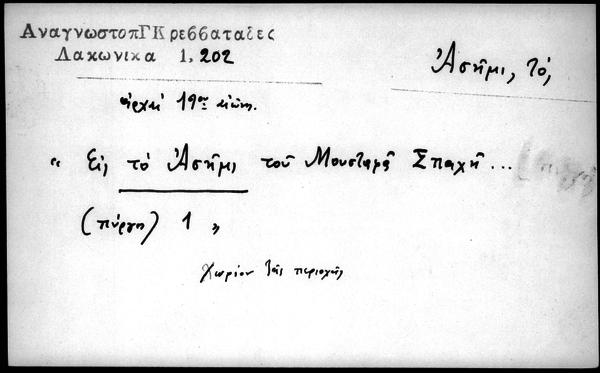 ΑναγνωστοπΓΚ ρεββαταδες
Λακωνικα 1, 202
Ἀσῆμι, τό,
ἀρχαί 19ου αἰῶνος.
“ Εἰς τό Ἀσῆμι τοῦ Μουσταφᾶ Σπαχῆ...
(πύργοι) 1 „
χωρίον τῆς περιοχῆς